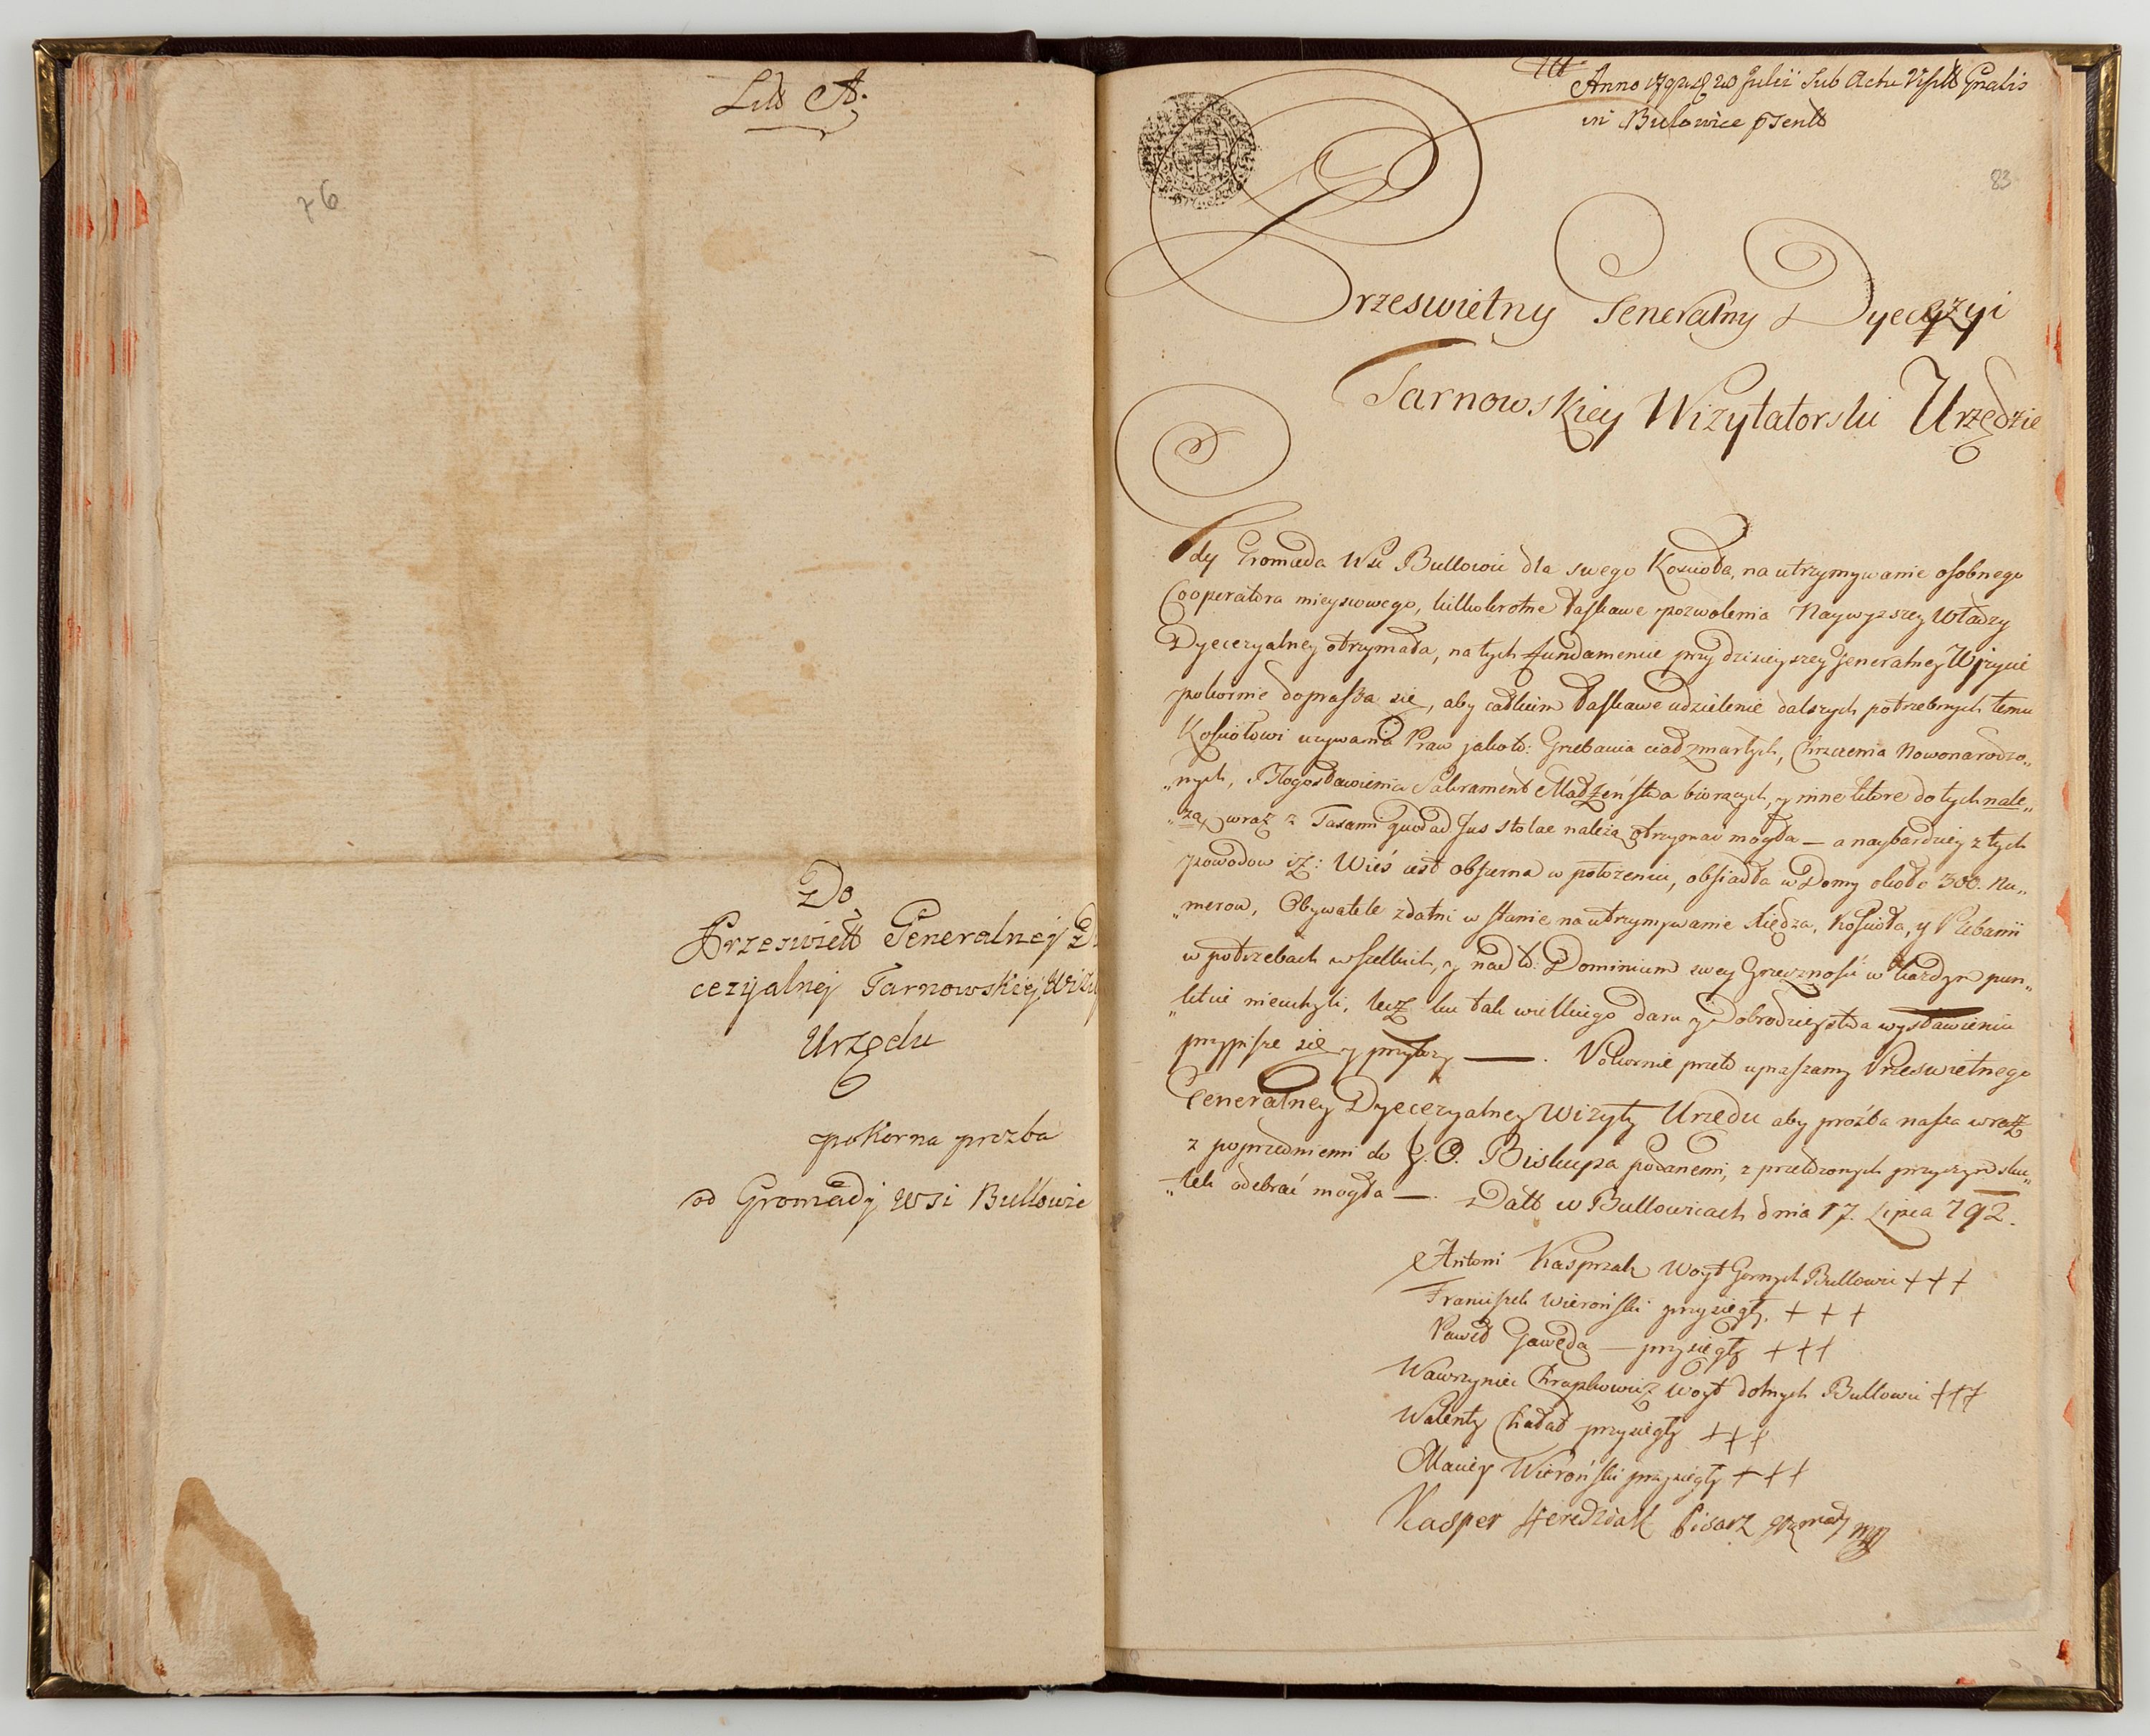 Litt A.
76
Do
Przeswiett Generalnej Dy
cezyalnej Tarnowskiej Wizy
Urzędu
pokorna prozba
od Gromady wsi Bullowic
Anno 1792 20 Julii sub Actu Visitt Gnalis
in Bulowice pSentt
83
Przeswietny Generalny Dyecezyi
Tarnowskiey Wizytatorski Urzędzie
Gdy Gromada Wsi Bullowic dla swego Koscioła, na utrzymywanie osobnego
Cooperatora mieyscowego, kilkokrotne łaskawe pozwolenia Naywyzszey Władzy
Dyecezyalney otrzymała, na tych fundamencie przy dzisieyszey Generalney Wizycie
pokornie doprasza się, aby całkiem łaskawe udzielenie dalszych potrzebnych temu
Kosciołowi uzywania Praw jakoto: Grzebania ciał zmarłych, Chrzczenia Nowonarodzo„
„nych, Błogosławienia Sakrament Małżeństwa biorących, y inne ktore do tych nale„
„żą, wraz z Taxami quoad Jus stolae należą otrzymac mogła — a naybardziey z tych
powodow iż: Wieś iest obszerna w położeniu, obsiadła w Domy około 300. Nu„
„merow, Obywatele zdatni w stanie na utrzymywanie Xiędza, Kościoła, y Plebanii
w potrzebach wszelkich, y nad to: Dominium swey Grzeczności w każdym pun„
„kcie nieuchyli, lecz ku tak wielkiego daru y Dobrodzieystwa wystawieniu
przypisze się y przyłoży —. Pokornie przeto upraszamy Przeswietnego
Generalney Dyecezyalney Wizyty Urzędu aby proźba nasza wraz
z poprzedniemi do J. O. Biskupa podanemi, z przełożonych przyczyn sku„
„tek odebrać mogła —. Datt w Bullowicach dnia 17. Lipca 792.
Antoni Kasprzak Woyt Gornych Bullowic + + +
Franciszek Wieroński przysięgły + + +
Paweł Gawęda — przysięgły + + +
Wawrzyniec Chrapkowicz Woyt dolnych Bullowic + + +
Walenty Chaład przysięgły + + +
Maciey Wieroński przysięgły + + +
Kasper pisarz gromady mpp